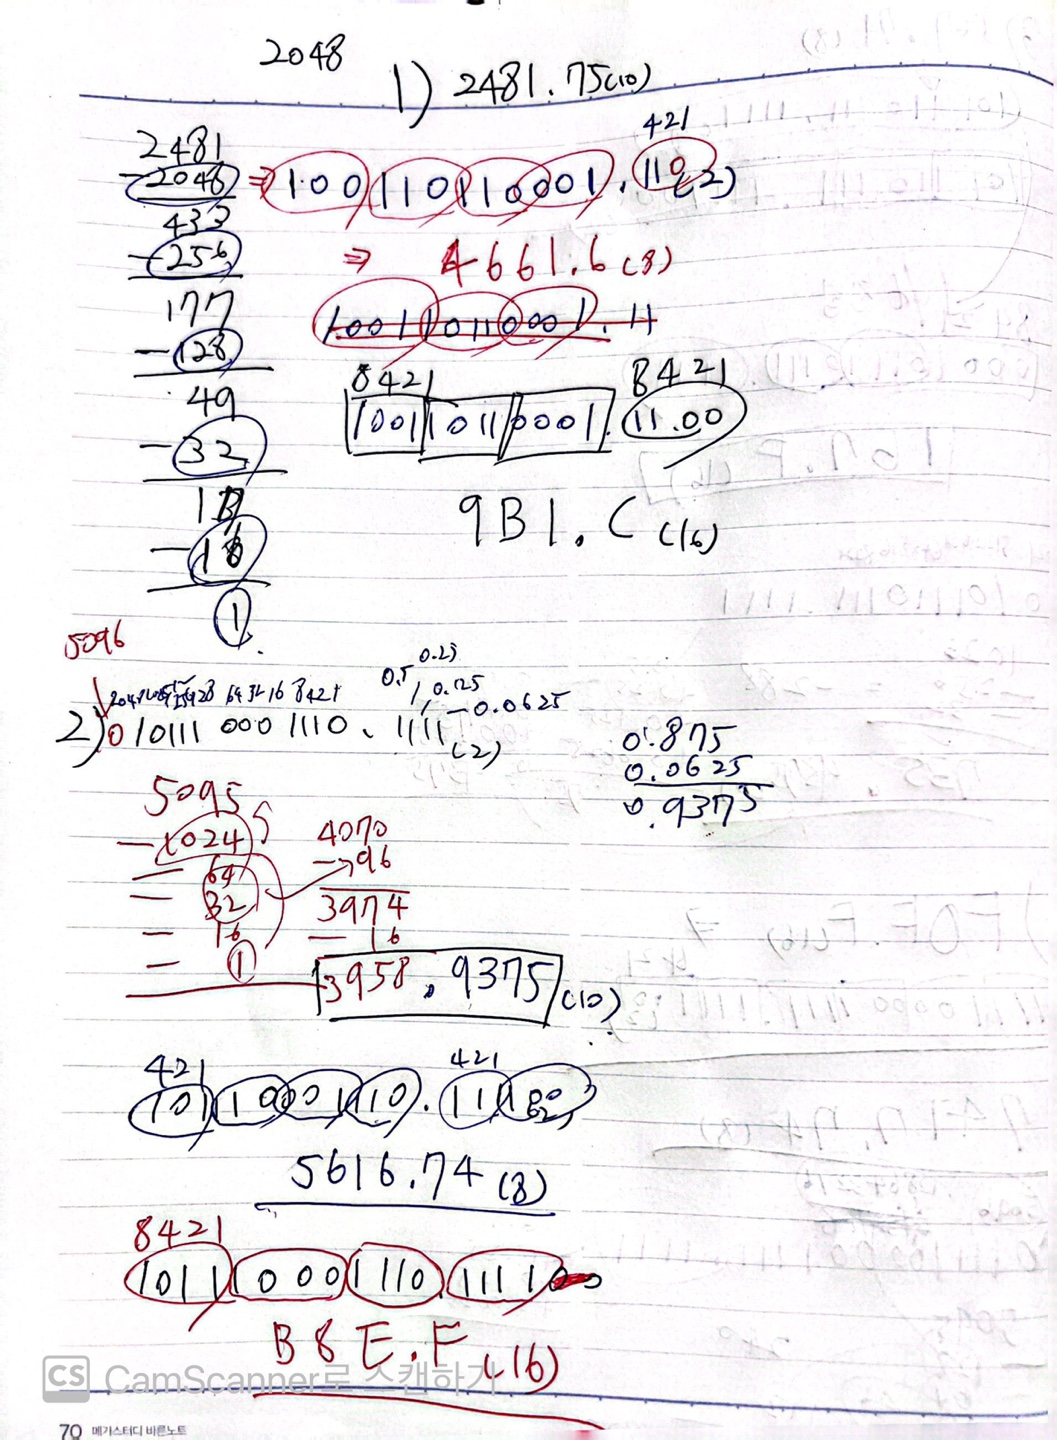 2048
1) 2481.75(10)
2481
-2048
433
-256
177
-128
49
-32
17
-16
1
421
⇒ 100110110001.110(2)
⇒ 4661.6(8)
100110110001.11
8421 8421
1001 1011 0001 11.00
9B1.C(16)
5096
0.5 0.25 0.125 0.0625
64 32 16 8421
2) 010111 000 1110. 1111(2)
0.875
0.0625
0.9375
5095
-1024
- 64
- 32
- 16
- 1
4070
- 96
3974
- 16
3958.9375(10)
421 421
101110001110.111100
5616.74(8)
8421
1011 1000 1110 1111
B8E.F(16)
CS CamScanner로 스캔하기
70 메가스터디 바른노트